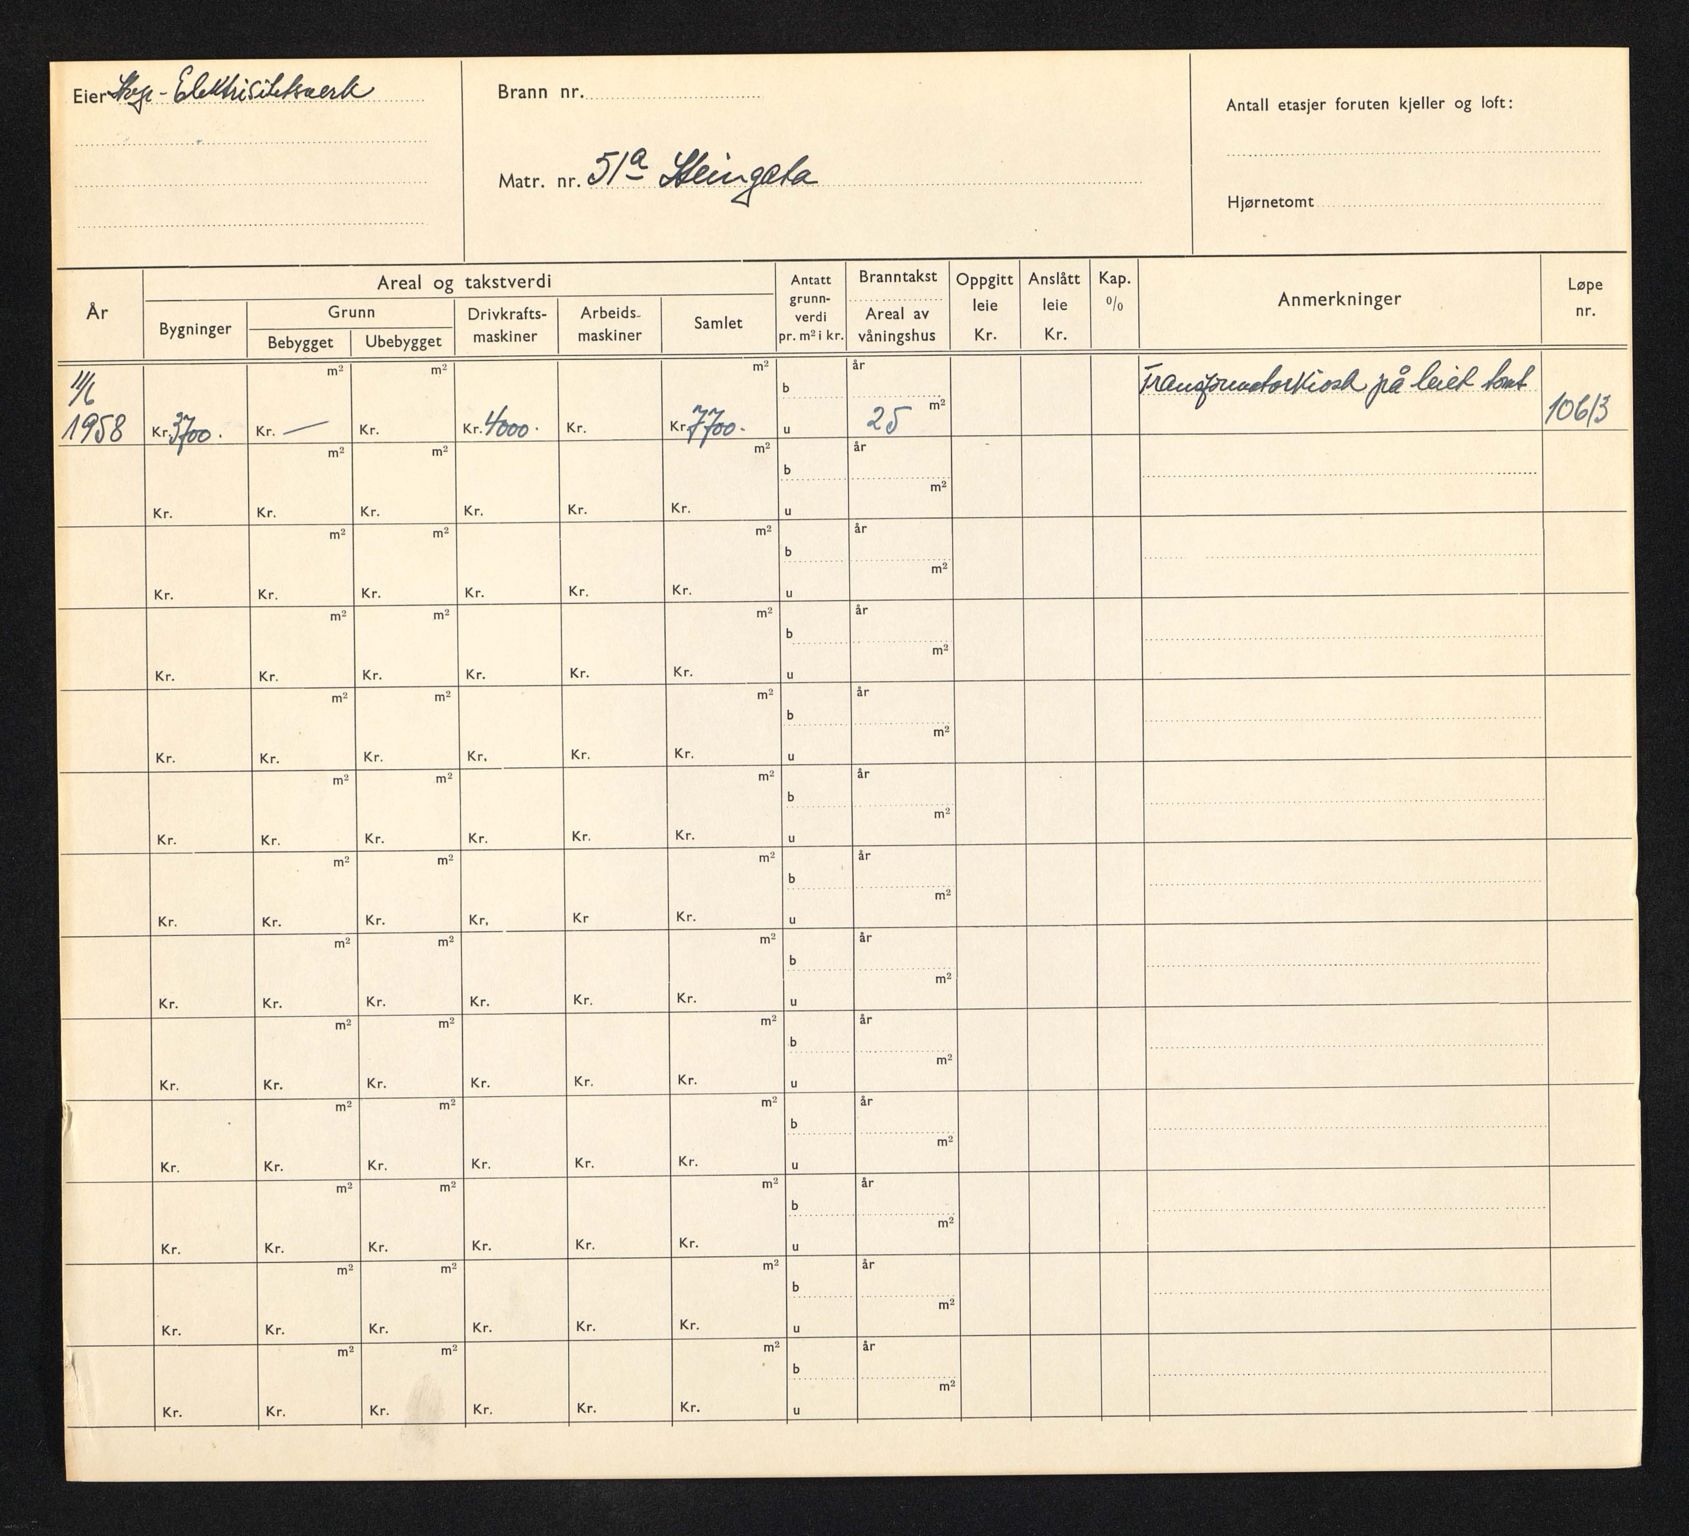 Eier Stvgr - Elektrisitetsverk
Brann nr.
Matr. nr. 51a Steingata
Antall etasjer foruten kjeller og loft:
Hjørnetomt
År
Areal og takstverdi
Bygninger
Grunn
Bebygget Ubebygget
Drivkrafts-
maskiner
Arbeids-
maskiner
Samlet
Antatt
grunn-
verdi
pr. m² i kr.
Branntakst
Areal av
våningshus
Oppgitt
leie
Kr.
Anslått
leie
Kr.
Kap.
%
Anmerkninger
Løpe
nr.
m² m² m² b år Transformatorkiosk på leiet tomt
11/6
1958 Kr. 3700. Kr. — Kr. Kr. 4000. Kr. Kr. 7700. u 25 m² 106/3
m² m² m² b år
m²
Kr. Kr. Kr. Kr. Kr. Kr. u
m² m² m² b år
m²
Kr. Kr. Kr. Kr. Kr. Kr. u
m² m² m² b år
m²
Kr. Kr. Kr. Kr. Kr. Kr. u
m² m² m² b år
m²
Kr. Kr. Kr. Kr. Kr. Kr. u
m² m² m² b år
m²
Kr. Kr. Kr. Kr. Kr. Kr. u
m² m² m² b år
m²
Kr. Kr. Kr. Kr. Kr Kr. u
m² m² m² b år
m²
Kr. Kr. Kr. Kr. Kr. Kr. u
m² m² m² b år
m²
Kr. Kr. Kr. Kr. Kr. Kr. u
m² m² m² b år
m²
Kr. Kr. Kr. Kr. Kr. Kr. u
m² m² m² b år
m²
Kr. Kr. Kr. Kr. Kr. Kr. u
m² m² m² b år
m²
Kr. Kr. Kr. Kr. Kr. Kr. u
m² m² m² b år
m²
Kr. Kr. Kr. Kr. Kr. Kr. u